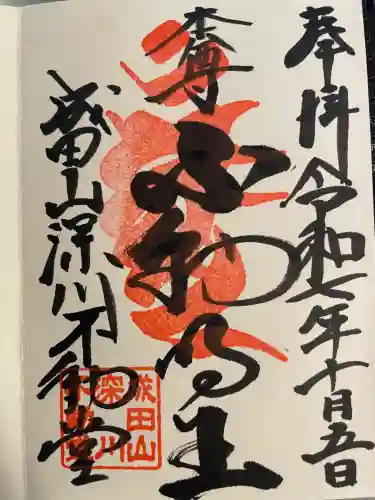 奉拝 令和七年十月五日
本尊 不動明王
成田山深川不動堂
成田山
深川
不動堂